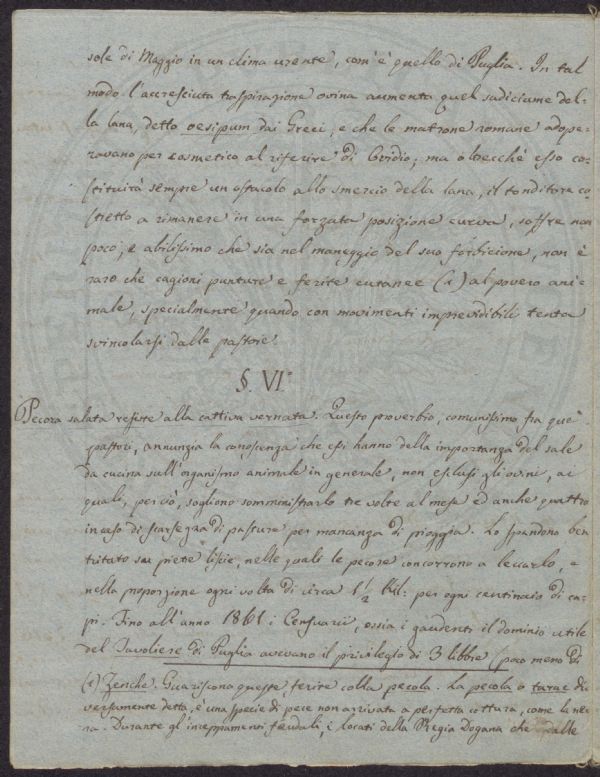 sole di Maggio in un clima urente, com'è quello di Puglia. In tal
modo l'accresciuta traspirazione ovina aumenta quel sudiciume del-
la lana, detto oesipum dai Greci, e che le matrone romane adope-
ravano per cosmetico al riferire di Ovidio; ma oltecché esso co-
stituirà sempre un ostacolo allo smercio della lana, il tonditore co-
stretto a rimanere in una forzata posizione curva, soffre non
poco; e abilissimo che sia nel maneggio del suo forbicione, non è
raro che cagioni punture e ferite cutanee (1) al povero ani-
male, specialmente quando con movimenti imprevidibili tenta
svincolarsi dalle pastoje.
§. VI.°
Pecora salata resiste alla cattiva vernata. Questo proverbio, comunissimo fra que'
pastori, annunzia la conoscenza che essi hanno della importanza del sale
da cucina sull'organismo animale in generale, non esclusi gli ovini, ai
quali, perciò, sogliono somministrarlo tre volte al mese ed anche quattro
in caso di scarsezza di pasture per mancanza di pioggia. Lo spandono ben
tritato su pietre liscie, nelle quali le pecore concorrono a leccarlo, e
nella proporzione ogni volta di circa 1 1/2 Kil: per ogni centinaio di ca-
pi. Fino all'anno 1861 i Censuarii, ossia i gaudenti il dominio utile
del Tavoliere di Puglia avevano il privilegio di 3 libbre (poco meno di
(1) Zenche. Guariscono queste ferite colla pecola. La pecola o turae di-
versamente detta, è una specie di pece non arrivata a perfetta cottura, come la ne-
ra. Durante gl'inceppamenti feudali, i locati della Regia Dogana che dalle